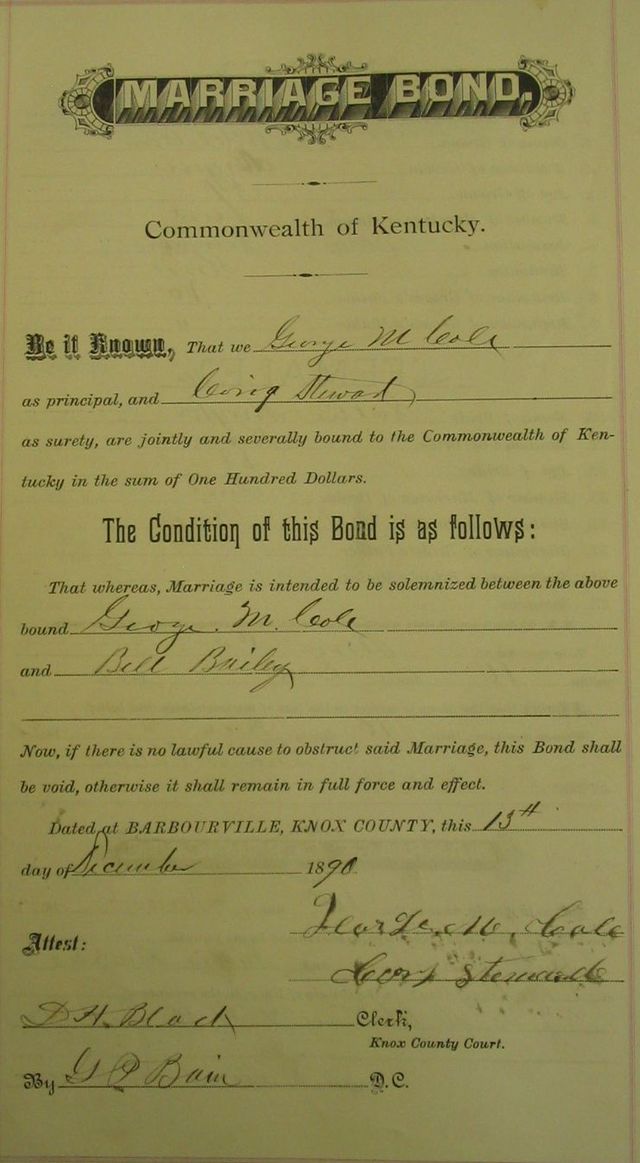 MARRIAGE BOND.
Commonwealth of Kentucky.
Be it Known, That we George M Cole
as principal, and Craig Steward
as surety, are jointly and severally bound to the Commonwealth of Ken-
tucky in the sum of One Hundred Dollars.
The Condition of this Bond is as follows:
That whereas, Marriage is intended to be solemnized between the above
bound George. M. Cole
and Bell Bailey
Now, if there is no lawful cause to obstruct said Marriage, this Bond shall
be void, otherwise it shall remain in full force and effect.
Dated at BARBOURVILLE, KNOX COUNTY, this 13th
day of December 1890
M. Cole
Attest:
D H. Black Clerk,
Knox County Court.
By G P Bain D.C.